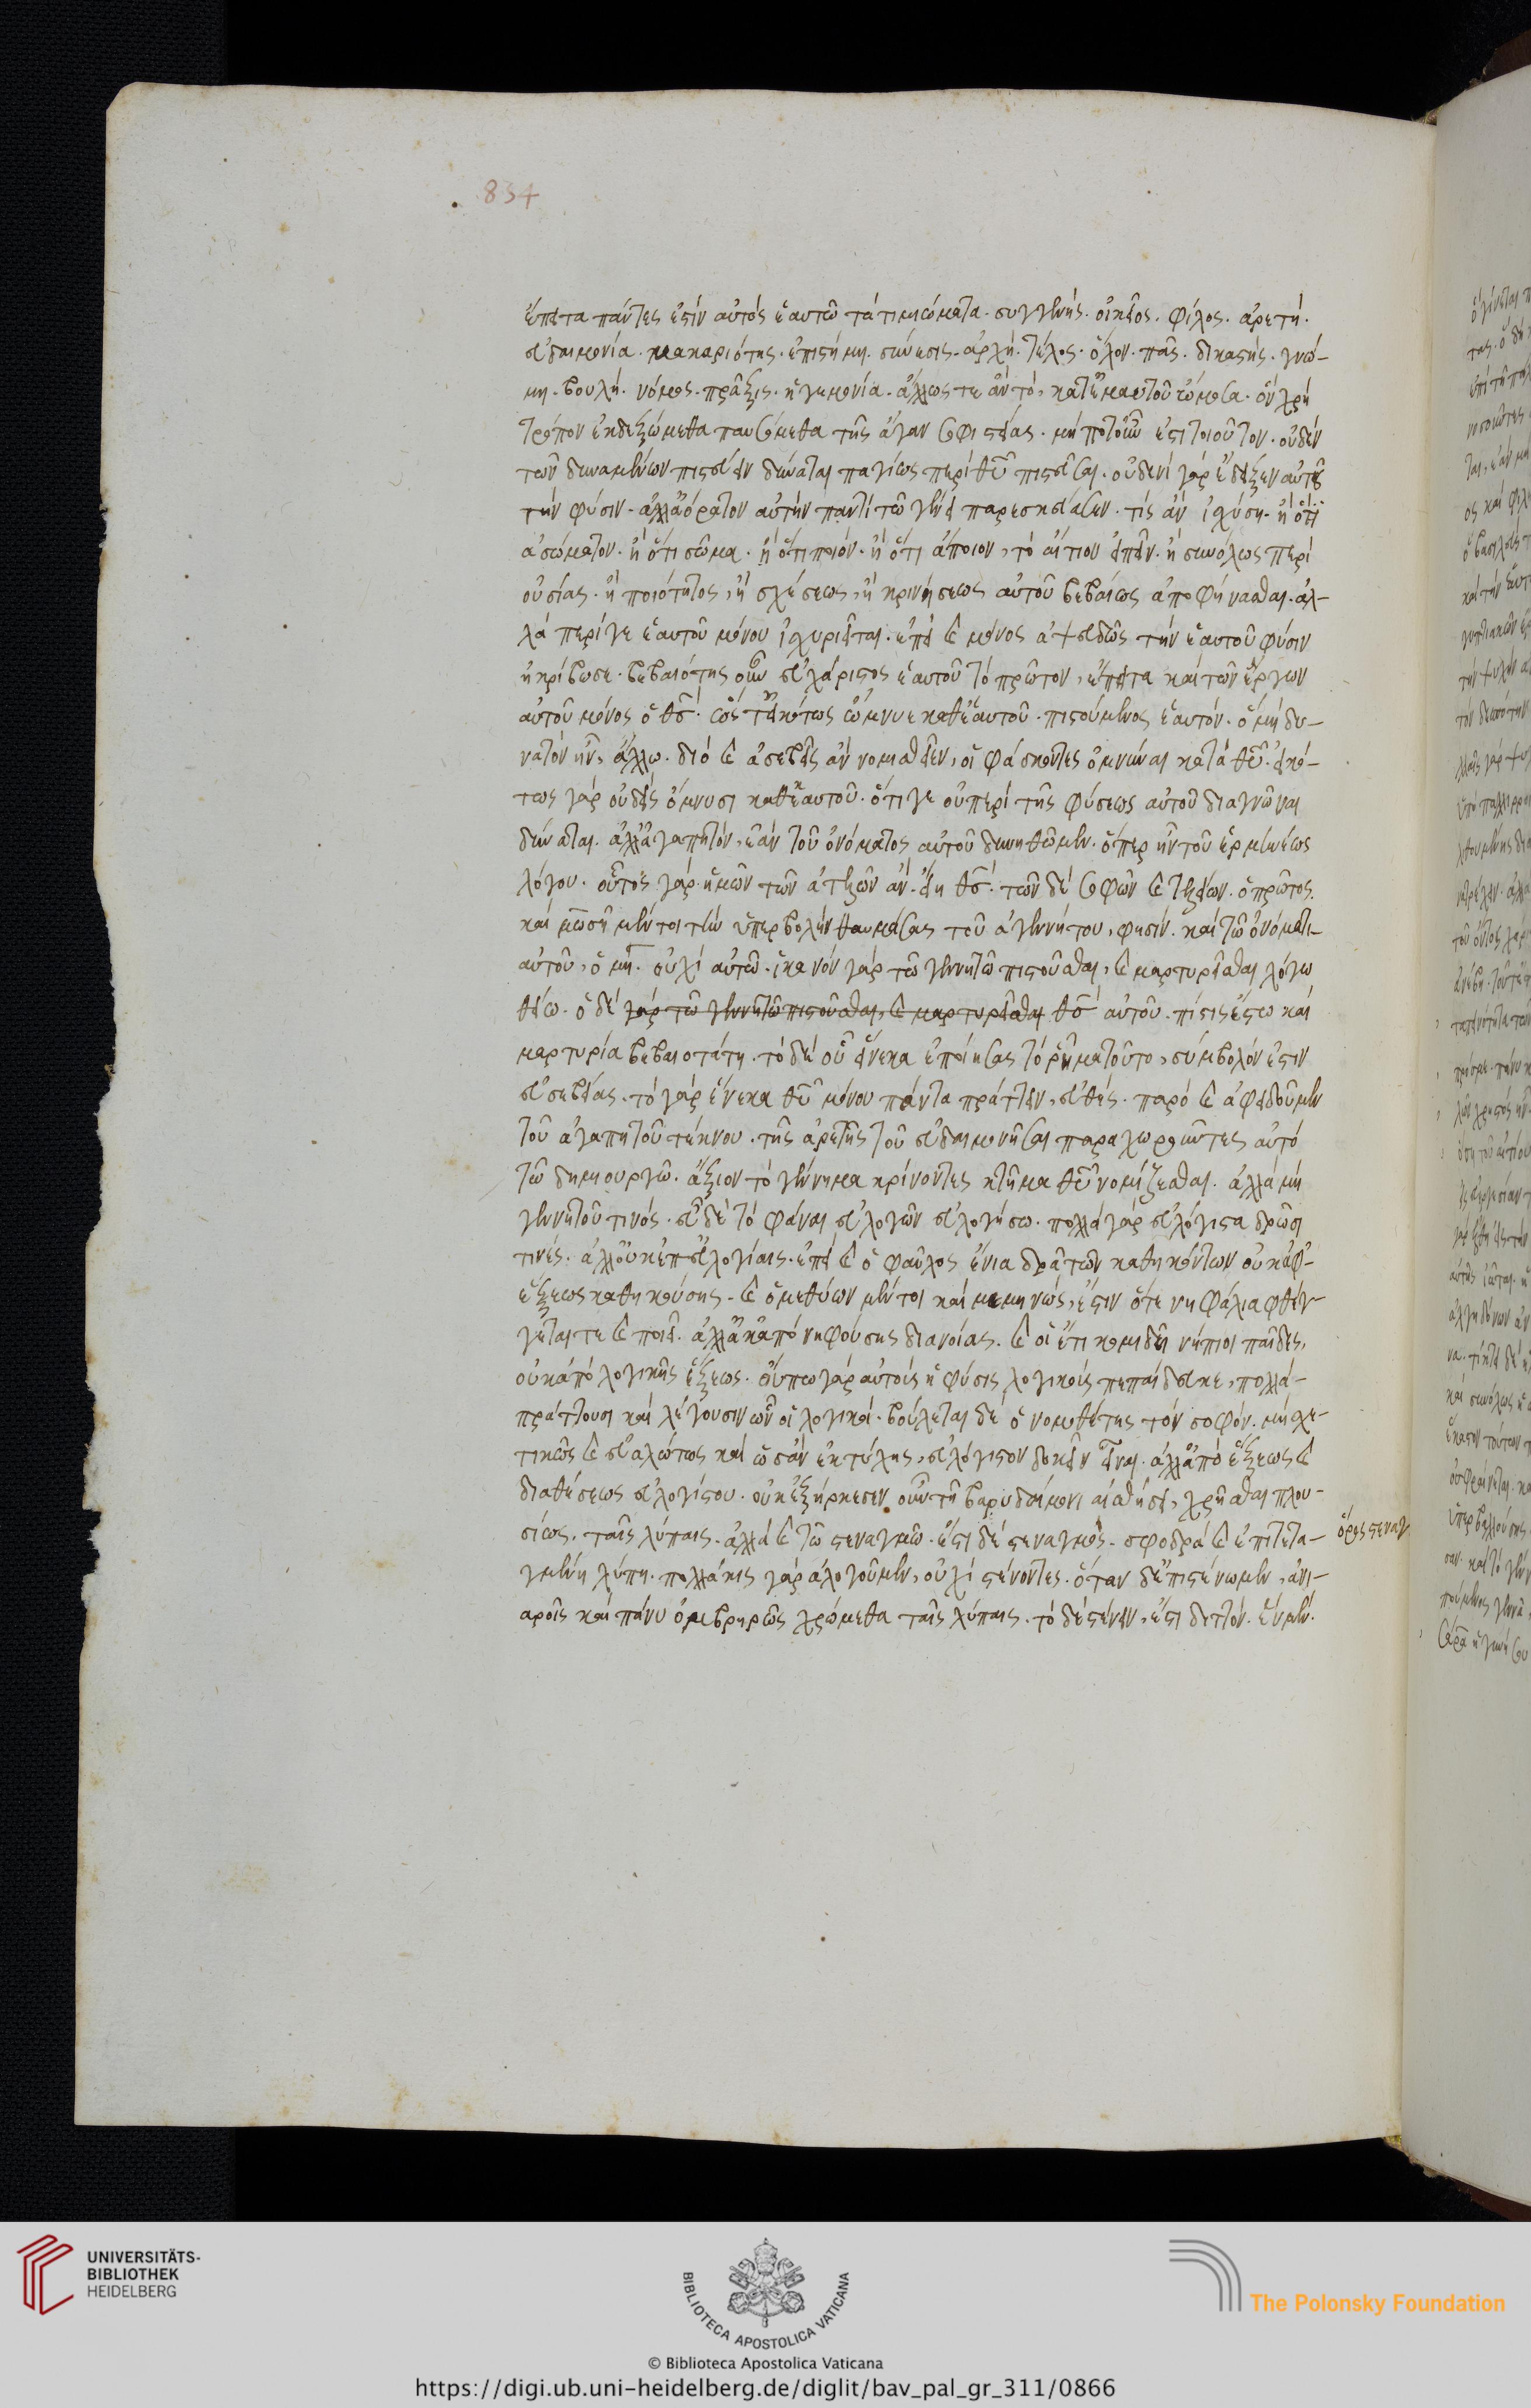 834
ἔπειτα πάντες ἐστὶν αὐτὸς ἑαυτῶ τὰ τιμιώματα. συγγενής. οἰκεῖος. φίλος. ἀρετή.
εὐδαιμονία. μακαριότης. ἐπιστήμη. σύνεσις. ἀρχή. τέλος. ὅλον. πᾶς. δικαστής. γνώ-
μη. βουλή. νόμος. πρᾶξις. ἡγεμονία. ἄλλως τε ἂν τὸ, κατ' ἐμαυτοῦ ὤμοσα. ὃν χρὴ
τρόπον ἐκδεξώμεθα παυσόμεθα τῆς ἄγαν σοφιστείας. μήποτ' οὖν ἐστι τοιοῦτον. οὐδὲν
τῶν δυναμένων πιστεύειν δύναται παγίως περὶ θυ πιστεῦσαι. οὐδενὶ γὰρ ἔδειξεν αὐτοῦ
τὴν φύσιν. ἀλλ' ἀόρατον αὐτὴν παντὶ τῶ γένει παρεσκεύασεν. τίς ἂν ἰσχύση. ἢ ὅτι
ἀσώματον. ἢ ὅτι σῶμα. ἢ ὅτι ποιόν. ἢ ὅτι ἄποιον, τὸ αἴτιον εἰπεῖν. ἢ συνόλως περὶ
οὐσίας. ἢ ποιότητος, ἢ σχέσεως, ἢ κρινήσεως αὐτοῦ βεβαίως ἀποφήνασθαι. ἀλ-
λὰ περί γε ἑαυτοῦ μόνου ἰσχυριεῖται. ἐπεὶ καὶ μόνος ἀψευδῶς τὴν ἑαυτοῦ φύσιν
ἠκρίβωσε. βεβαιότης οὖν εὐχάριστος ἑαυτοῦ τὸ πρῶτον, ἔπειτα καὶ τῶν ἔργων
αὐτοῦ μόνος ὁ θς. ὥστ' εἰκότως ὤμνυε καθ' ἑαυτοῦ. πιστούμενος ἑαυτόν. ὃ μὴ δυ-
νατὸν ἦν, ἄλλω. διὸ καὶ ἀσεβεῖς ἂν νομισθεῖεν, οἱ φάσκοντες ὀμνύναι κατὰ θυ. εἰκό-
τως γὰρ οὐδεὶς ὄμνυσι καθ' ἑαυτοῦ. ὅτι γε οὐ περὶ τῆς φύσεως αὐτοῦ διαγνῶναι
δύναται. ἀλλ' ἀγαπητὸν, ἐὰν τοῦ ὀνόματος αὐτοῦ δυνηθῶμεν. ὅπερ ἦν τοῦ ἑρμηνέως
λόγου. οὗτος γὰρ ἡμῶν τῶν ἀτελῶν ἂν. εἴη θς. τῶν δὲ σοφῶν καὶ τελείων. ὁ πρῶτος.
καὶ μωσῆ μέντοι τὴν ὑπερβολὴν θαυμάσας τοῦ ἀγεννήτου, φησίν. καὶ τῶ ὀνόματι
αὐτοῦ, ὁ μῆ. οὐχὶ αὐτῶ. ἱκανὸν γὰρ τῶ γεννητῶ πιστοῦσθαι, καὶ μαρτυρεῖσθαι λόγω
θείω. ὁ δὲ γὰρ τῶ γεννητῶ πιστοῦσθαι, καὶ μαρτυρεῖσθαι θς αὐτοῦ. πίστις ἔστω καὶ
μαρτυρία βεβαιοτάτη. τὸ δὲ οὗ ἕνεκα ἐποίησας τὸ ῥῆμα τοῦτο, σύμβολόν ἐστιν
εὐσεβείας. τὸ γὰρ ἕνεκα θυ μόνου πάντα πράττειν, εὐθές. παρὸ καὶ ἀφειδοῦμεν
τοῦ ἀγαπητοῦ τέκνου. τῆς ἀρετῆς τοῦ εὐδαιμονῆσαι παραχωροῦντες αὐτὸ
τῶ δημιουργῶ. ἄξιον τὸ γέννημα κρίνοντες κτῆμα θυ νομίζεσθαι. ἀλλὰ μὴ
γεννητοῦ τινός. εὖ δὲ τὸ φάναι εὐλογῶν εὐλογήσω. πολλὰ γὰρ εὐλόγιστα δρῶσι
τινές. ἀλλ' οὐκ ἐπ' εὐλογίαις. ἐπεὶ καὶ ὁ φαῦλος ἔνια δρᾶ τῶν καθηκόντων οὐκ ἀφ'
ἕξεως καθηκούσης. καὶ ὁ μεθύων μέντοι καὶ μεμηνὼς, ἔστιν ὅτε νηφάλια φθέγ-
γεταί τε καὶ ποιεῖ. ἀλλ' οὐκ ἀπὸ νηφούσης διανοίας. καὶ οἱ ἔτι κομιδῆ νήπιοι παῖδες,
οὐκ ἀπὸ λογικῆς ἕξεως. οὔπω γὰρ αὐτοὺς ἡ φύσις λογικοὺς πεπαίδευκε, πολλὰ
πράττουσι καὶ λέγουσιν ὧν οἱ λογικοί. βούλεται δὲ ὁ νομοθέτης τὸν σοφὸν. μὴ σχε-
τικῶς καὶ εὐαλώτως καὶ ὡσὰν ἐκ τύχης, εὐλόγιστον δοκεῖν εἶναι. ἀλλ' ἀπὸ ἕξεως καὶ
διαθέσεως εὐλογίστου. οὐκ ἐξήρκεσεν οὖν τῆ βαρυδαίμονι αἰσθήσει, χρῆσθαι πλου-
σίως, ταῖς λύπαις. ἀλλὰ καὶ τῶ στεναγμῶ. ἔστι δὲ στεναγμὸς. σφοδρὰ καὶ ἐπιτετα-
γμένη λύπη. πολλάκις γὰρ ἀλγοῦμεν, οὐχὶ στένοντες. ὅταν δ' ἐπιστένωμεν, ἀνι-
αροῖς καὶ πάνυ ὀμβρηρῶς χρώμεθα ταῖς λύπαις. τὸ δὲ στένειν, ἔστι διττόν. ἓν μὲν.
ὅρος στεναγ
UNIVERSITÄTS-
BIBLIOTHEK
HEIDELBERG
BIBLIOTECA APOSTOLICA VATICANA
The Polonsky Foundation
© Biblioteca Apostolica Vaticana
https://digi.ub.uni-heidelberg.de/diglit/bav_pal_gr_311/0866